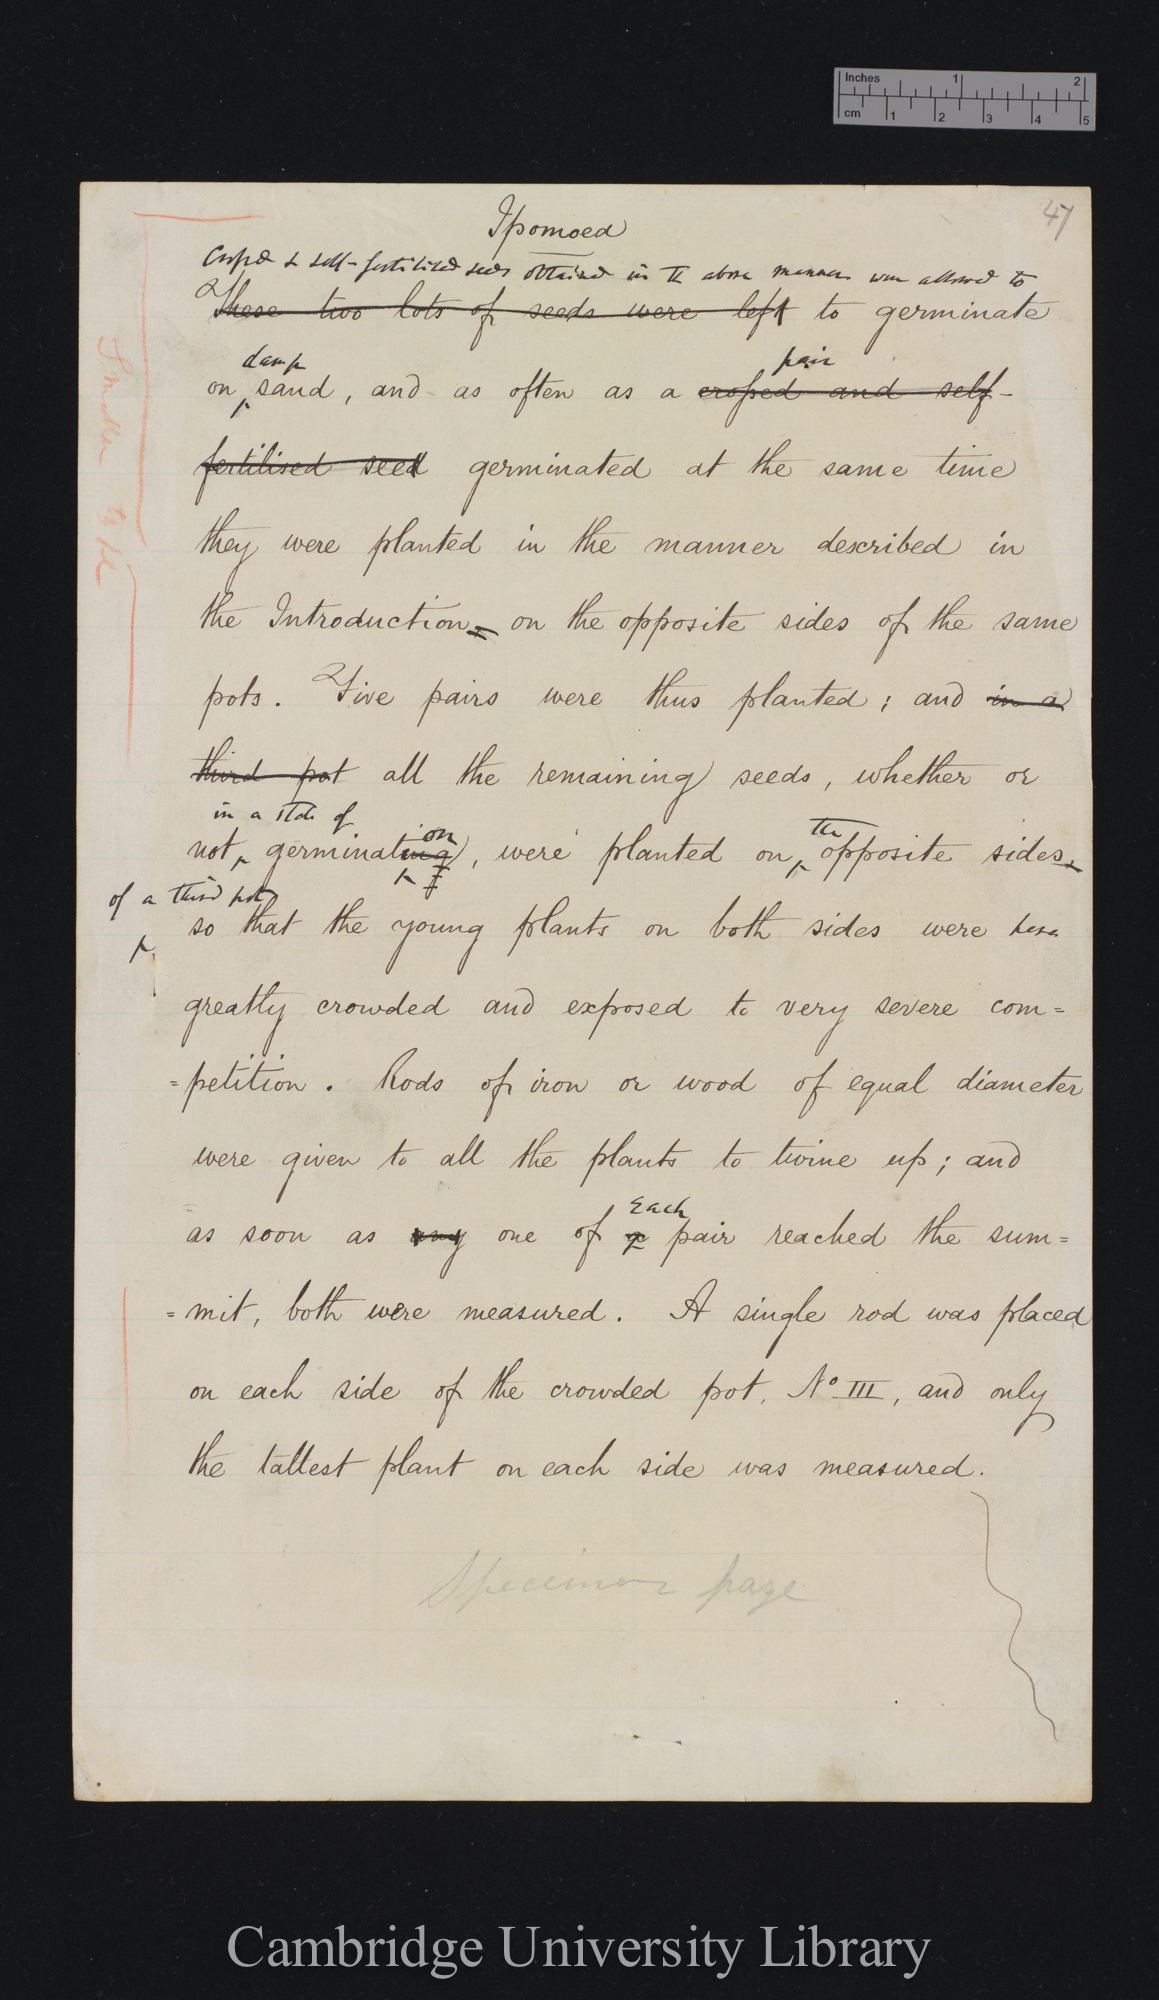 Inches 1 2
cm 1 2 3 4 5
47
Ipomoea
Crossed & self-fertilised seeds obtained in the above manner were allowed to
These two lots of seeds were left to germinate
damp pair
on sand, and as often as a crossed and self-
fertilised seed germinated at the same time
they were planted in the manner described in
the Introduction on the opposite sides of the same
pots. Five pairs were thus planted; and in a
third pot all the remaining seeds, whether or
in a state of on the
not germinating, were planted on opposite sides
of a third pot
so that the young plants on both sides were here
greatly crowded and exposed to very severe com=
=petition. Rods of iron or wood of equal diameter
were given to all the plants to twine up; and
Each
as soon as any one of a pair reached the sum=
=mit, both were measured. A single rod was placed
on each side of the crowded pot, No III, and only
the tallest plant on each side was measured.
Specimen page
Smaller type
Cambridge University Library